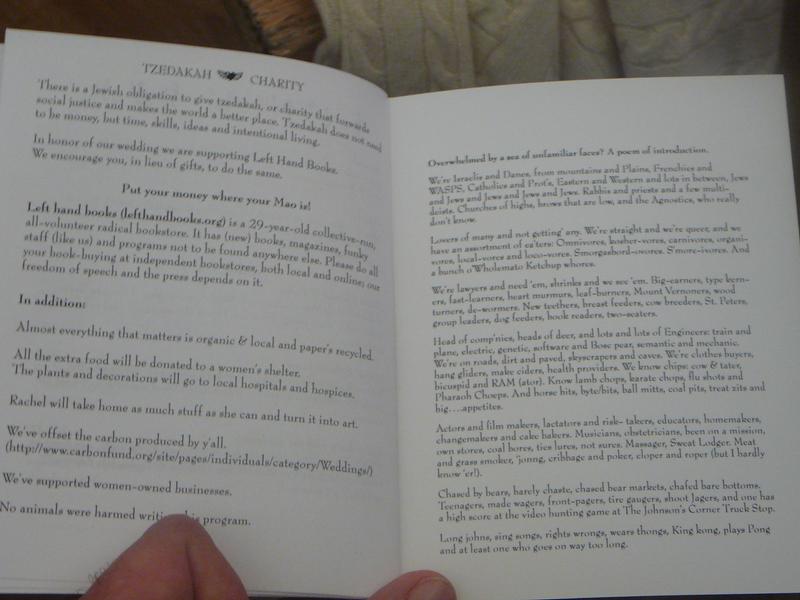 TZEDAKAH CHARITY
There is a Jewish obligation to give tzedakah, or charity that forwards
social justice and makes the world a better place. Tzedakah does not need
to be money, but time, skills, ideas and intentional living.
In honor of our wedding we are supporting Left Hand Books.
We encourage you, in lieu of gifts, to do the same.
Put your money where your Mao is!
Left hand books (lefthandbooks.org) is a 29-year-old collective-run,
all-volunteer radical bookstore. It has (new) books, magazines, funky
staff (like us) and programs not to be found anywhere else. Please do all
your book-buying at independent bookstores, both local and online; our
freedom of speech and the press depends on it.
In addition:
Almost everything that matters is organic & local and paper's recycled.
All the extra food will be donated to a women's shelter.
The plants and decorations will go to local hospitals and hospices.
Rachel will take home as much stuff as she can and turn it into art.
We've offset the carbon produced by y'all.
(http://www.carbonfund.org/site/pages/individuals/category/Weddings/)
We've supported women-owned businesses.
No animals were harmed program.
Overwhelmed by a sea of unfamiliar faces? A poem of introduction.
We're Israelis and Danes, from mountains and Plains, Frenchies and
WASPS, Catholics and Prot's, Eastern and Western and lots in between, Jews
and Jews and Jews and Jews and Jews. Rabbis and priests and a few multi-
deists. Churches of highs, brows that are low, and the Agnostics, who really
don't know.
Lovers of many and not getting' any. We're straight and we're queer, and we
have an assortment of ea'ters: Omnivores, kosher-vores, carnivores, organi-
vores, local-vores and loco-vores. Smorgasbord-ovores. S'more-ivores. And
a bunch o'Wholemato Ketchup whores.
We're lawyers and need 'em, shrinks and we see 'em. Big-earners, type kern-
ers, fast-learners, heart murmurs, leaf-burners, Mount Vernoners, wood
turners, de-wormers. New teethers, breast feeders, cow breeders, St. Peters,
group leaders, dog feeders, book readers, two-seaters.
Head of comp'nies, heads of deer, and lots and lots of Engineers: train and
plane, electric, genetic, software and Bosc pear, semantic and mechanic.
We're on roads, dirt and paved, skyscrapers and caves. We're clothes buyers,
hang gliders, make ciders, health providers. We know chips: cow & tater,
bicuspid and RAM (ator). Know lamb chops, karate chops, flu shots and
Pharaoh Choeps. And horse bits, byte/bits, ball mitts, coal pits, treat zits and
big....appetites.
Actors and film makers, lactators and risk- takers, educators, homemakers,
changemakers and cake bakers. Musicians, obstetricians, been on a mission,
own stores, coal bores, ties lures, not sures. Massager, Sweat Lodger. Meat
and grass smoker, 'jonng, cribbage and poker, cloper and roper (but I hardly
know 'er!).
Chased by bears, barely chaste, chased bear markets, chafed bare bottoms.
Teenagers, made wagers, front-pagers, tire gaugers, shoot Jagers, and one has
a high score at the video hunting game at The Johnson's Corner Truck Stop.
Long johns, sing songs, rights wrongs, wears thongs, King kong, plays Pong
and at least one who goes on way too long.